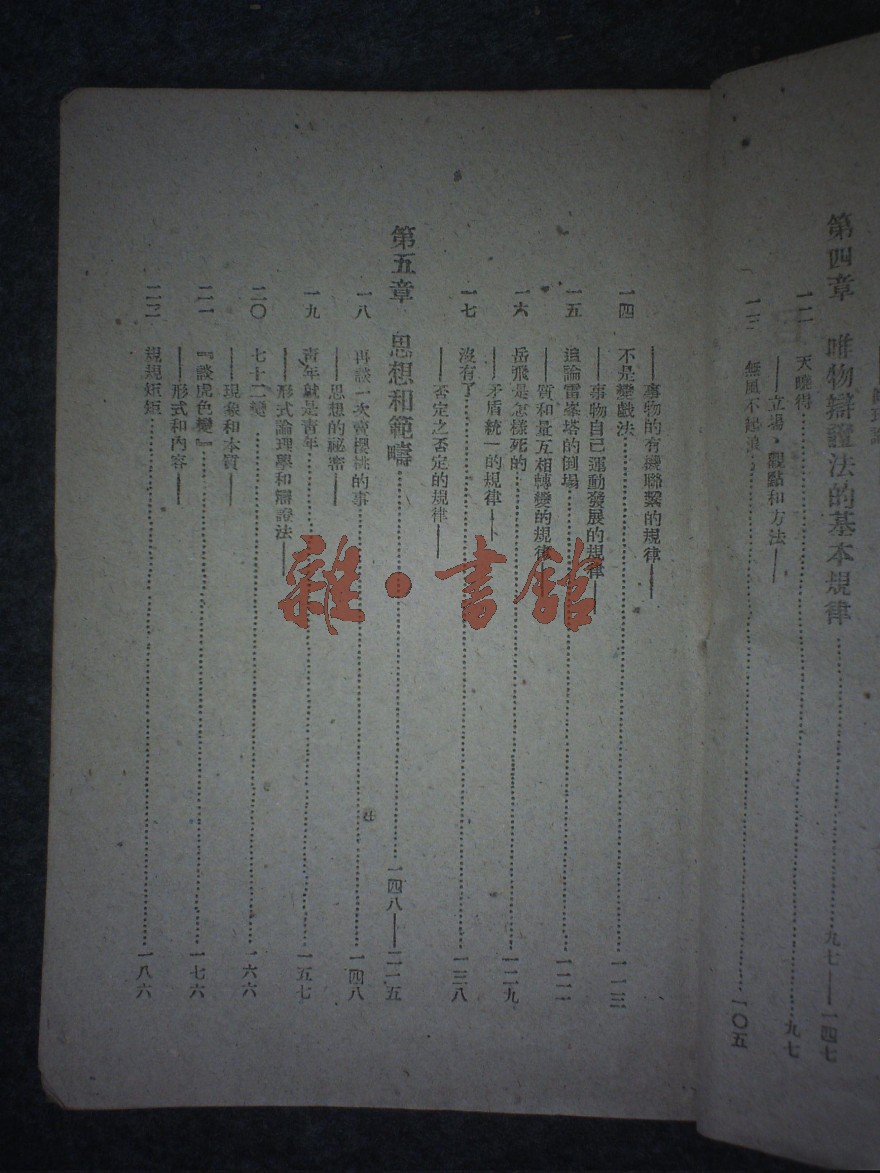 第四章　唯物辯證法的基本規律……九七——一四七
一二　天曉得……九七
——立場・觀點和方法——
一三　無風不起浪……一〇五
——事物的有機聯繫的規律——
一四　不是變戲法……一一三
——事物自己運動發展的規律——
一五　追論雷峯塔的倒塌……一二一
——質和量互相轉變的規律——
一六　岳飛是怎樣死的……一二九
——矛盾統一的規律——
一七　沒有了……一三八
——否定之否定的規律——
第五章　思想和範疇……一四八——二一五
一八　再談一次賣櫻桃的事……一四八
——思想的祕密——
一九　青年就是青年……一五七
——形式論理學和辯證法——
二〇　七十二變……一六六
——現象和本質——
二一　『談虎色變』……一七六
——形式和內容——
二二　規規矩矩……一八六
雜・書館